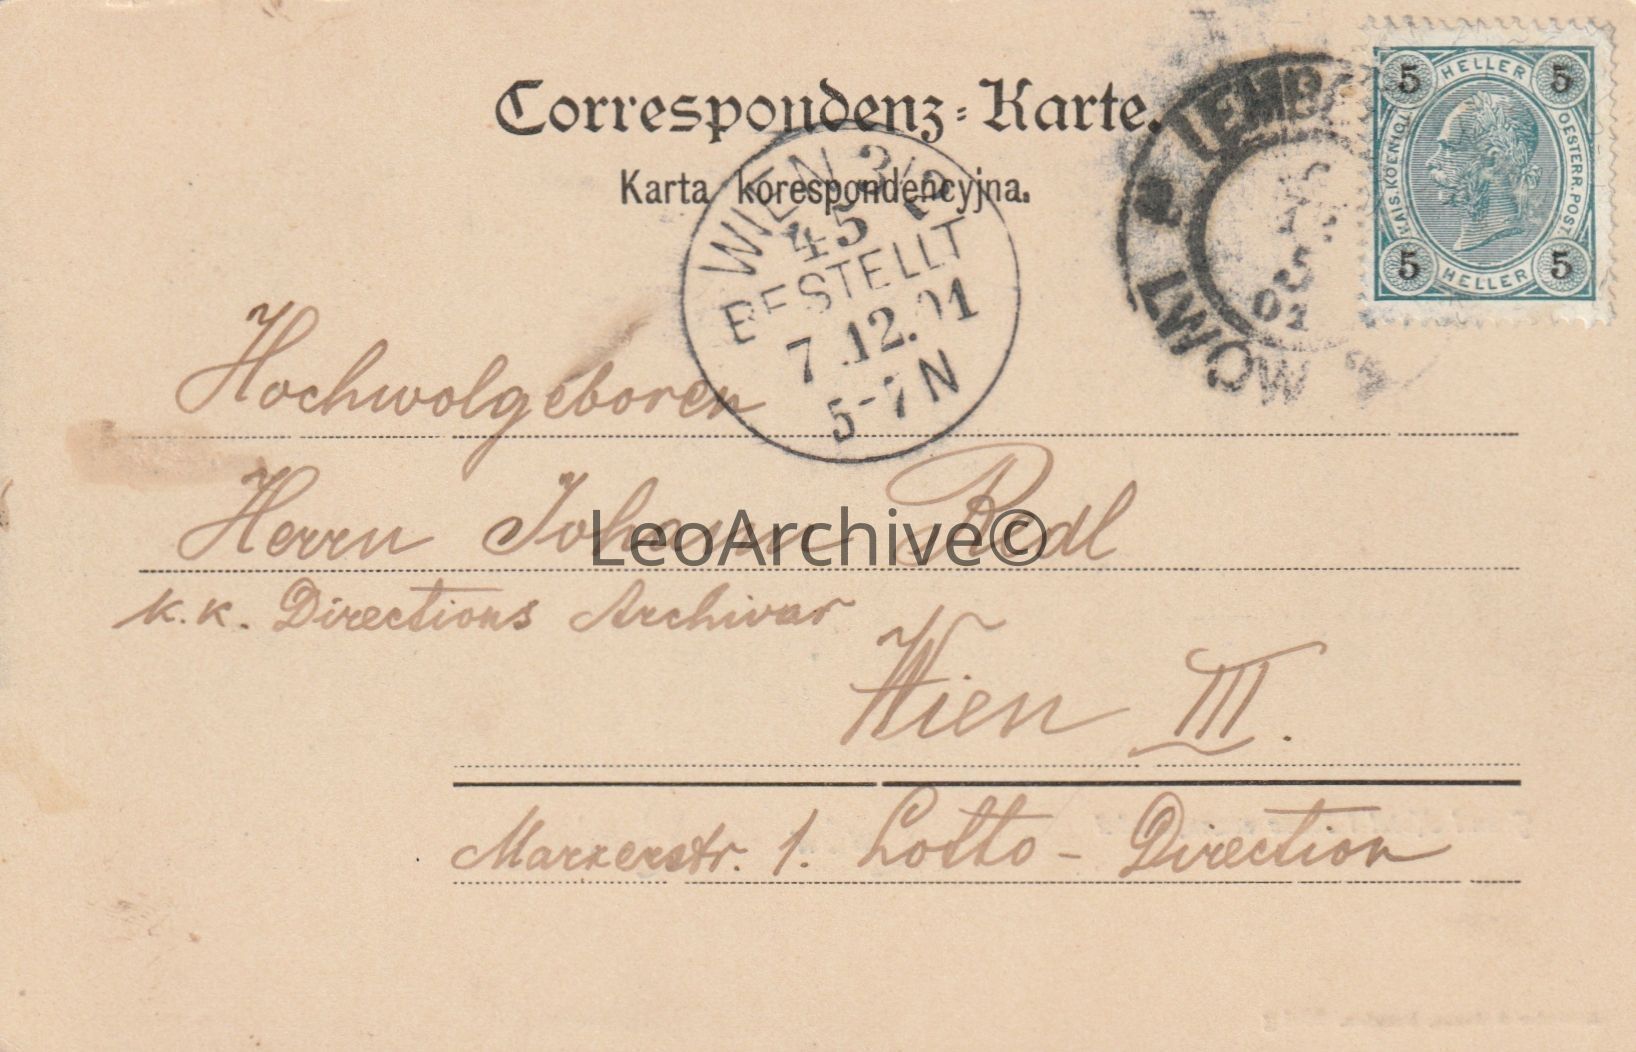 Correspondenz-Karte.
Karta korespondencyjna.
5 HELLER 5
KAIS. KOENIGL. OESTERR. POST
5 HELLER 5
LEMBERG
LWOW
01
WIEN 3/2
45
BESTELLT
7.12.01
5-7N
Hochwolgeboren
Herrn Johann Redl
LeoArchive©
k. k. Directions Archivar
Wien III.
Marxerstr. 1. Lotto-Direction